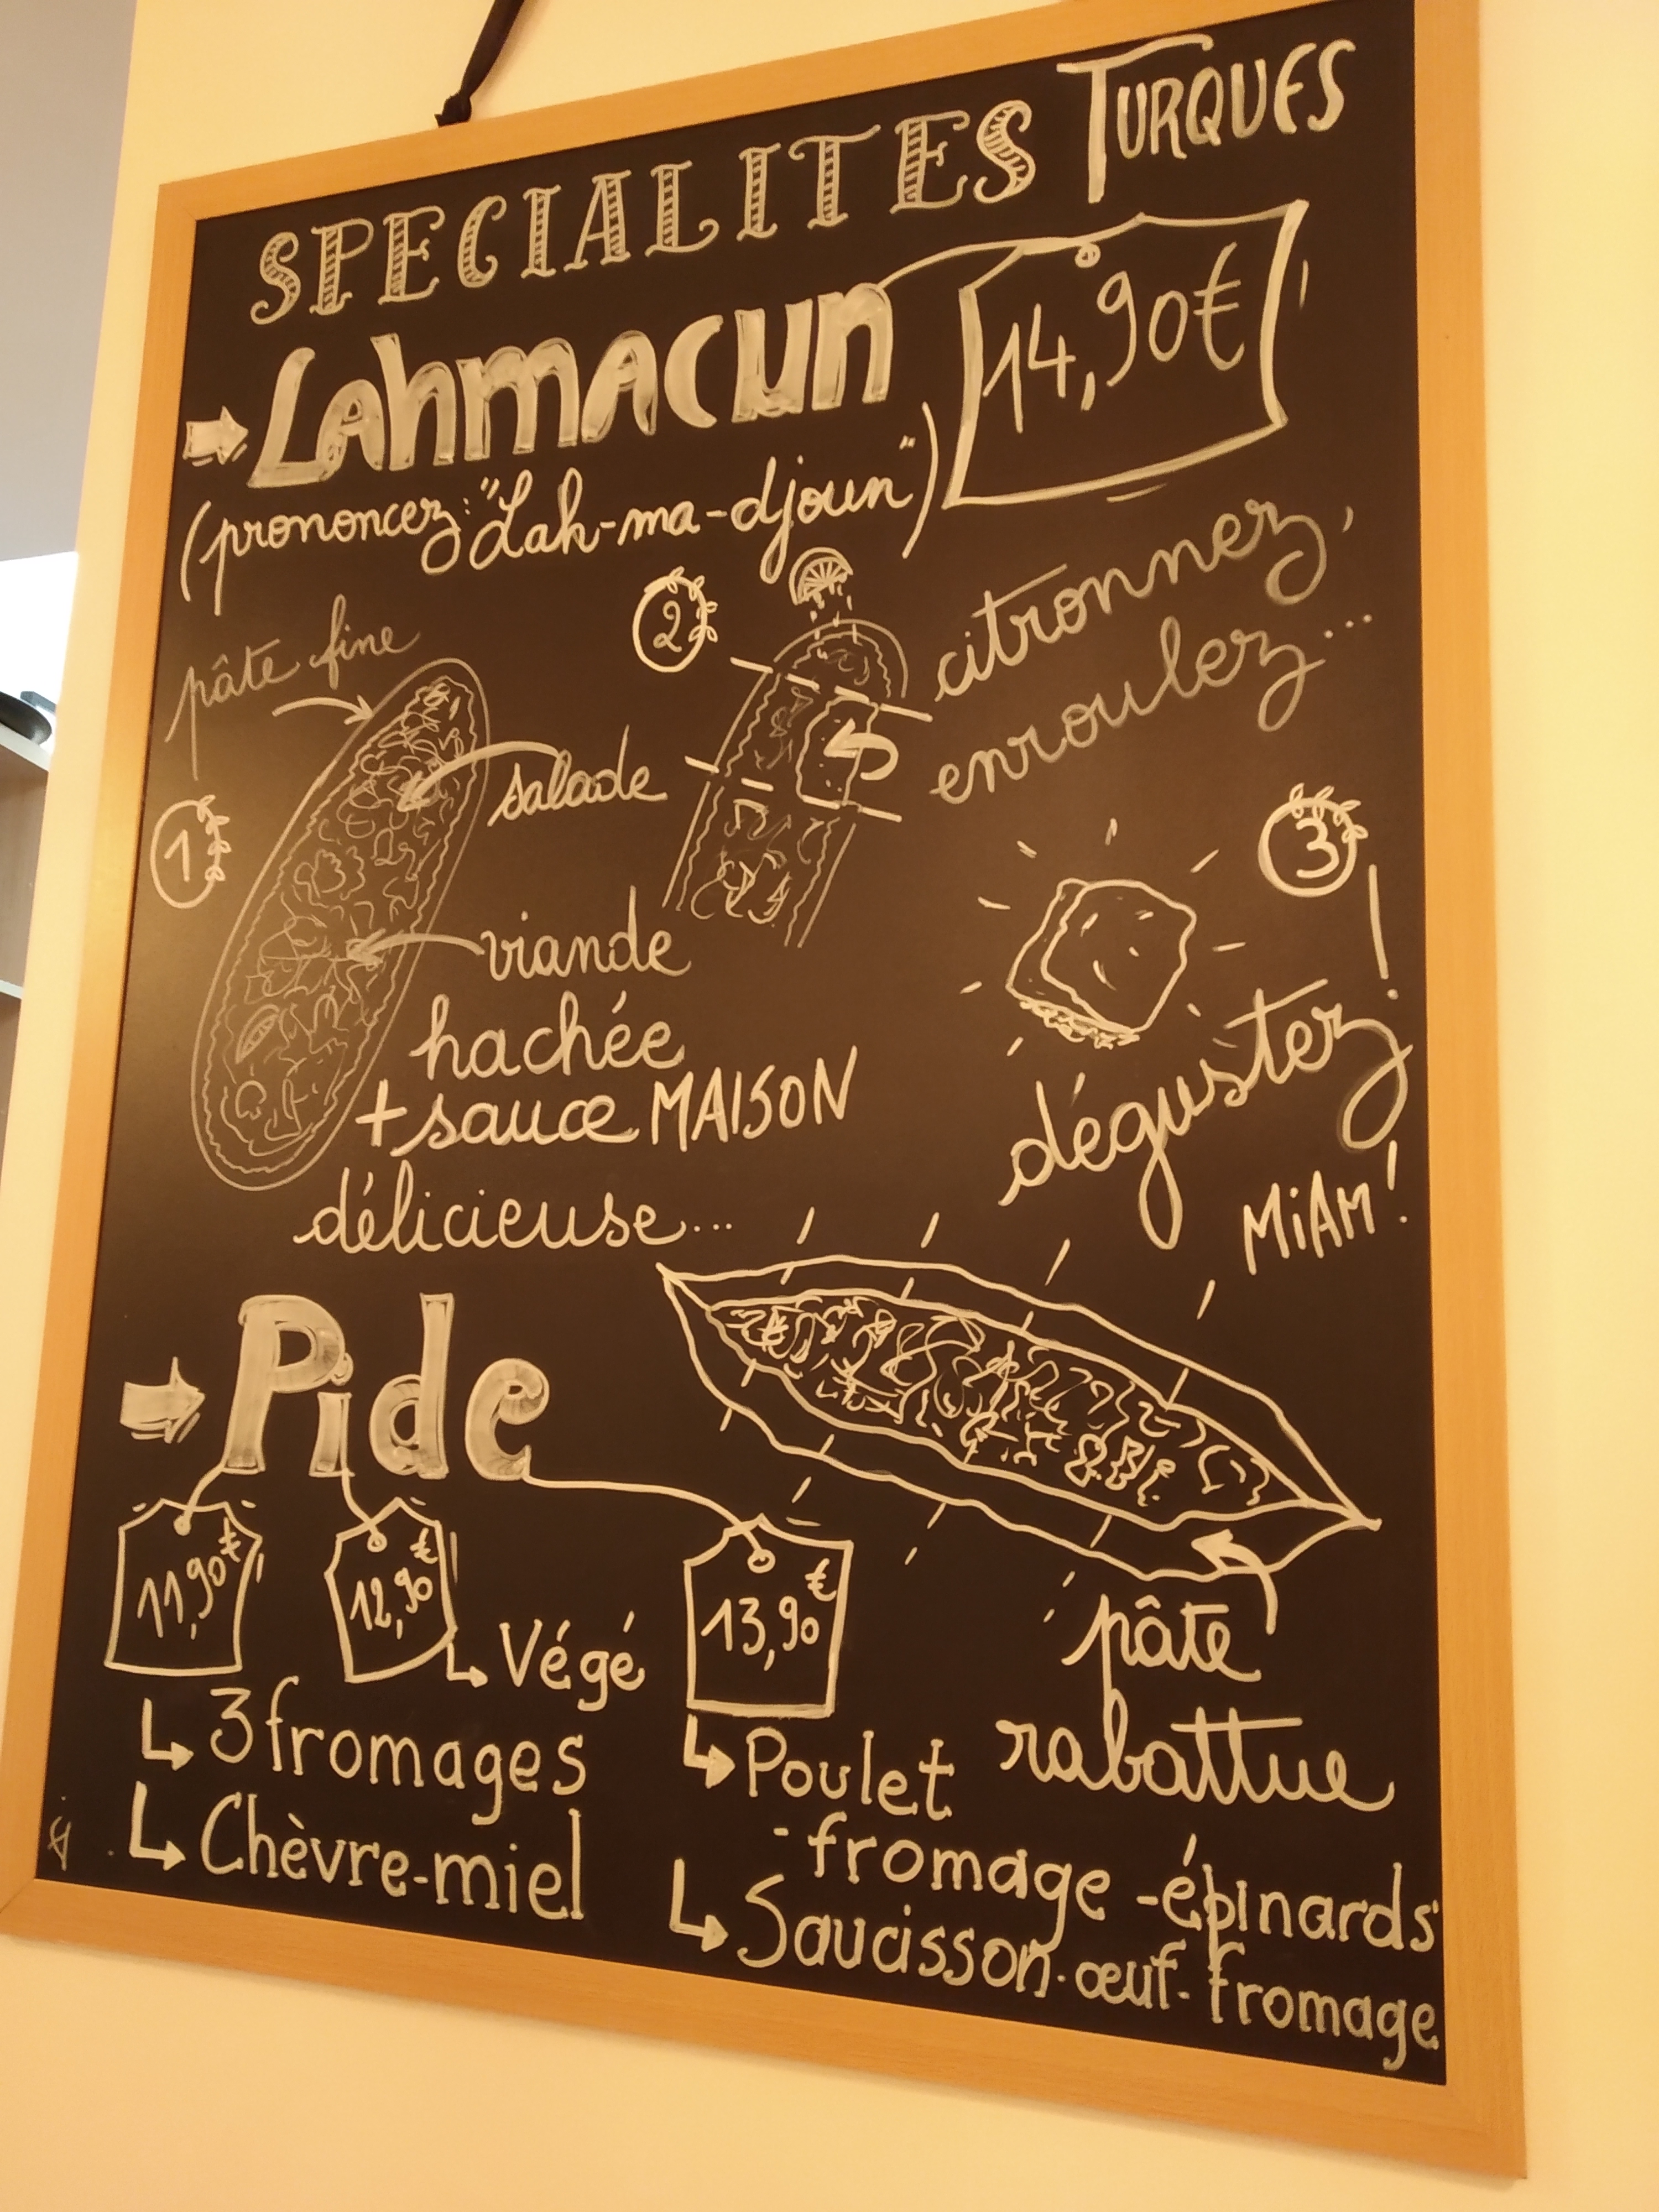 SPECIALITES TURQUES
Lahmacun
14,90€
(prononcez: "Lah-ma-djoun")
pâte fine
1
salade
viande
hachée
+ sauce MAISON
délicieuse...
2
citronnez,
enroulez...
3
dégustez!
MiAM!
Pide
11,90€
12,90€
13,90€
Végé
3 fromages
Chèvre-miel
Poulet
-fromage-épinards
Saucisson-œuf-fromage
pâte
rabattue